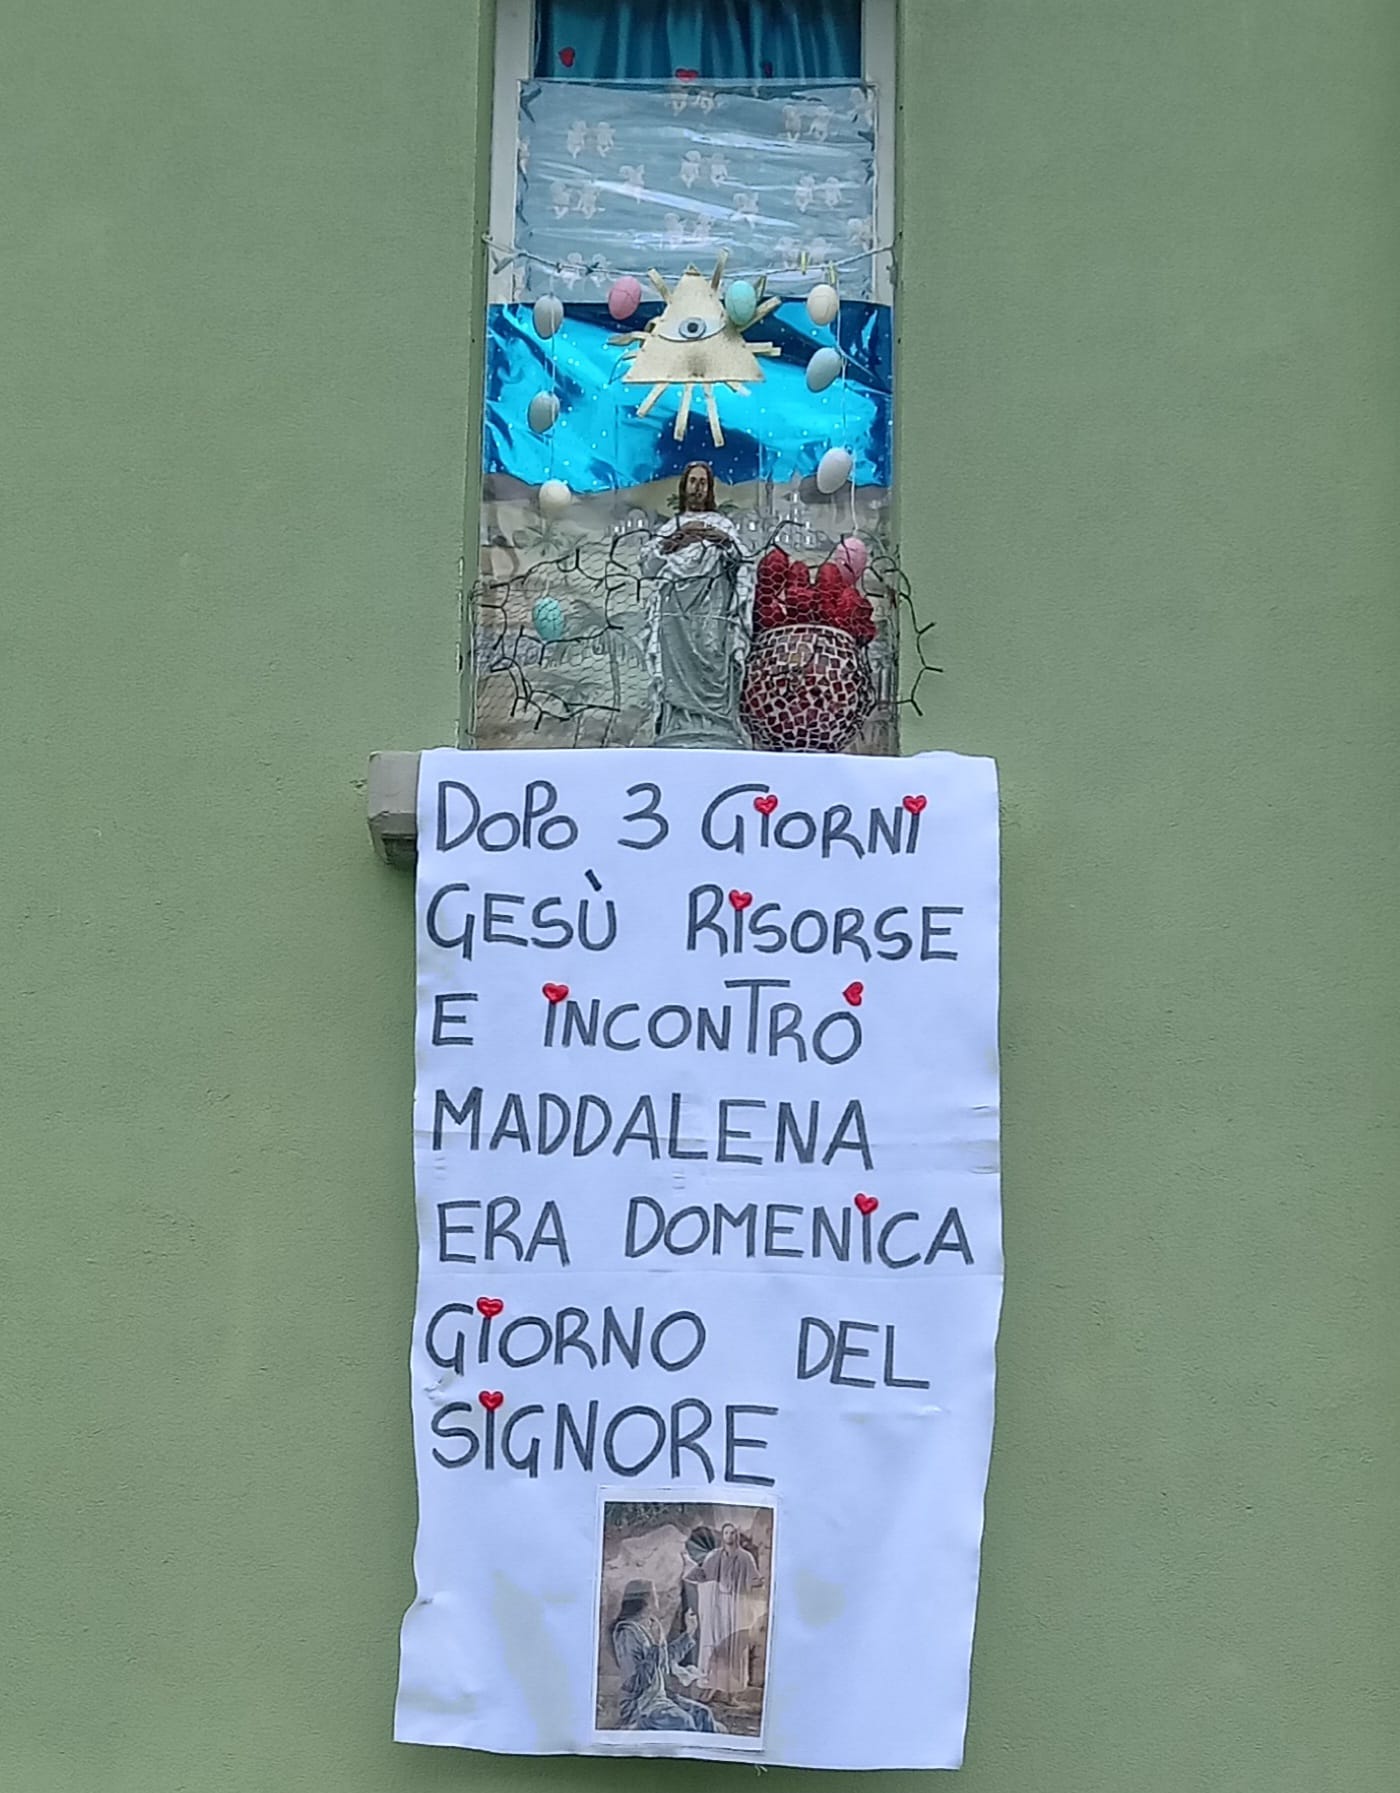 DOPO 3 GIORNI
GESÙ RISORSE
E INCONTRÓ
MADDALENA
ERA DOMENICA
GIORNO DEL
SIGNORE